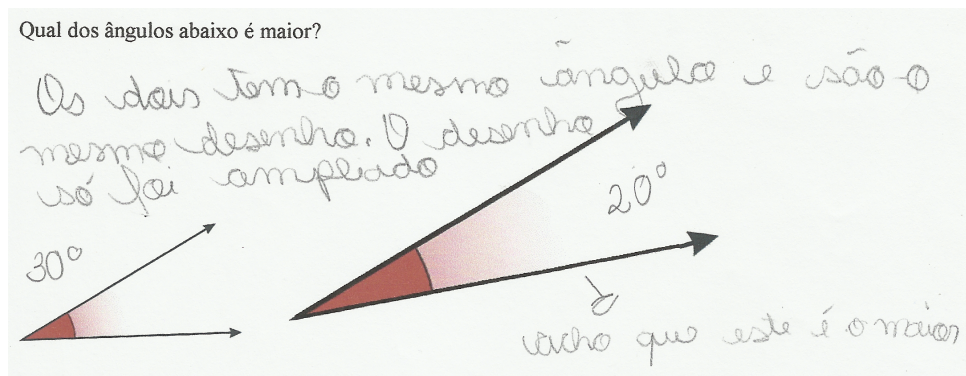 Qual dos ângulos abaixo é maior?
Os dois tem o mesmo ângulo e são o
mesmo desenho. O desenho
só foi ampliado
20°
30°
acho que este é o maior